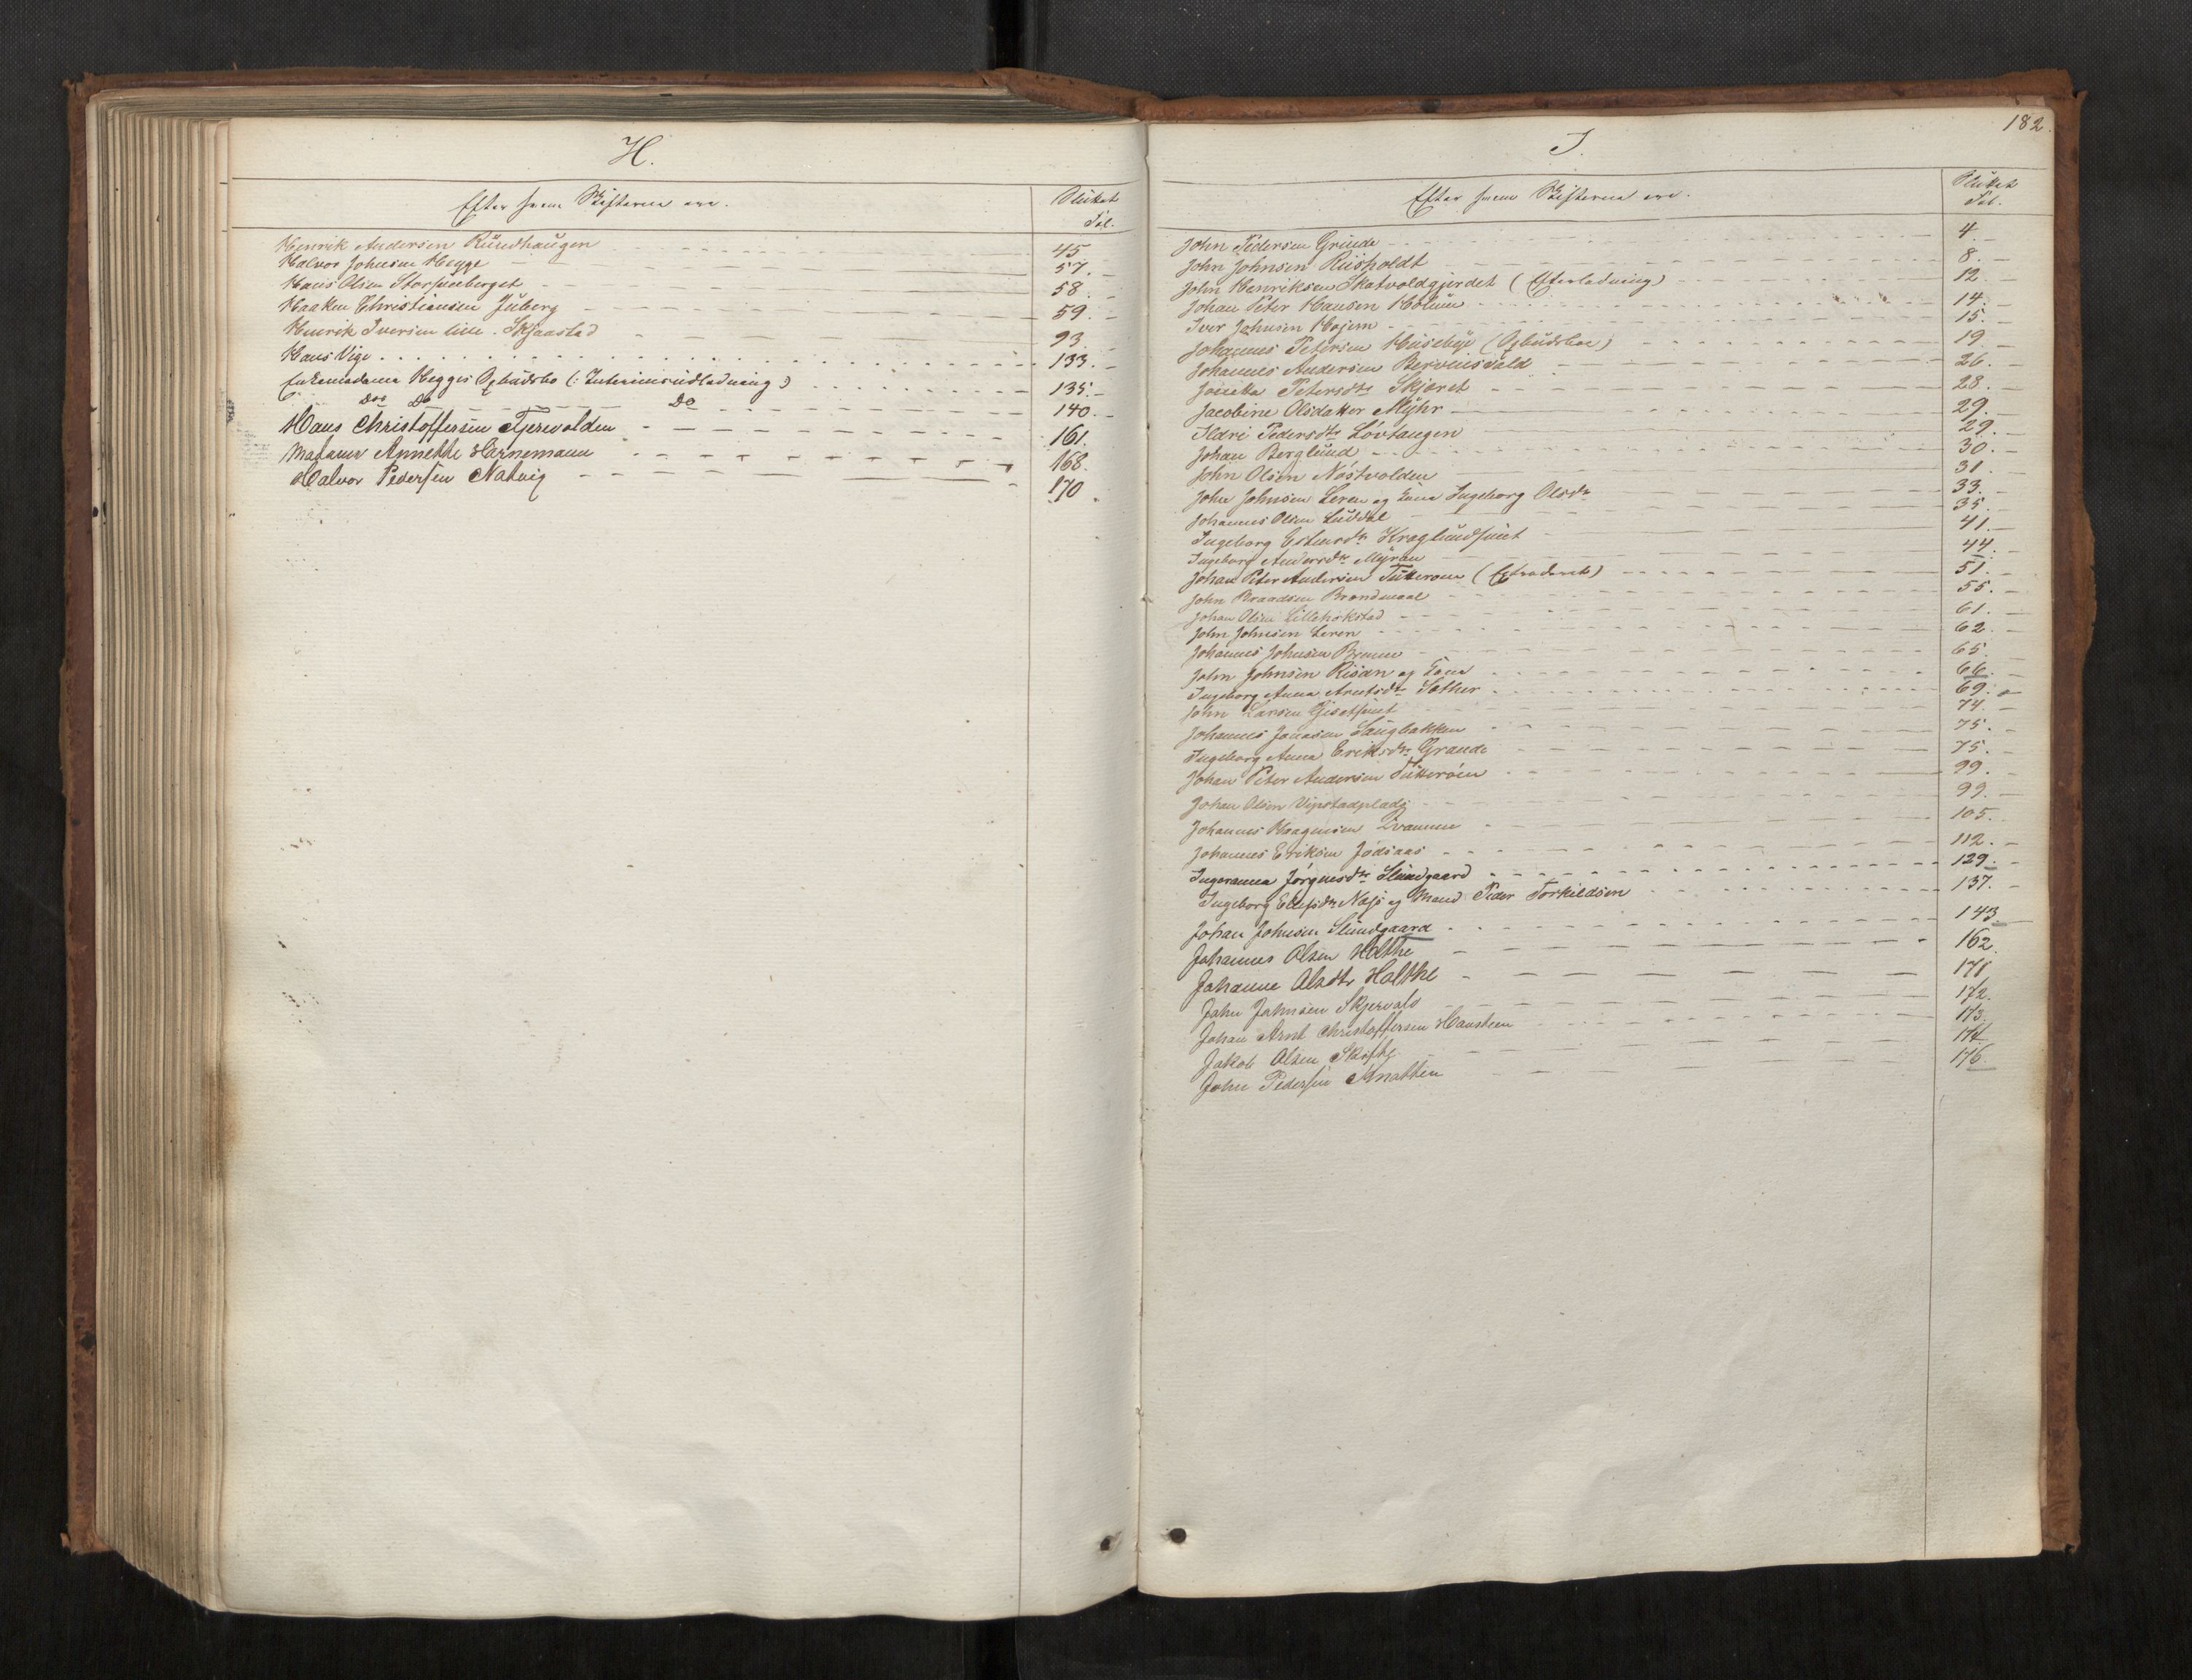 H.
Efter hvem Skifterne ere.
Sluttet
Fol.
Henrik Andersen Rüredhaugen 45
Halvor Johnsen Hegge 57.
Hans Olsen 58
Haaken Christiansen Juberg 59.
Henrik Iversen lille Skjaastad 93
Hans Vige 133.
Enkemadame Hegges Opbudsbo (: Interimsudlodning :) 135.
Do Do Do 140.
Hans Christoffersen Tjerevolden 161.
Madame Annette Hornemann 168.
Halvor Pedersen Natvig 170.
182.
I.
Efter hvem Skifterne ere.
Sluttet
Fol.
John Pedersen Grinde 4.
John Johnsen Riisholdt 8.
John Henriksen Skatvoldgjerdet (Efterlodning) 12.
Johan Peter Hansen Holum 14.
Iver Johnsen Hojem 15.
Johannes Petersen Husebye (Opbudsboe) 19
Johannes Andersen 26.
Jonetta Petersdtr Skjøret 28.
Jacobine Olsdatter Myhr 29.
Ildri Pedersdtr Løvtangen 29.
Johan Berglund 30.
John Olsen Nøstvolden 31.
John Johnsen Leren og Kone Ingeborg Olsdtr 33.
Johannes Olsen Luddal 35.
Ingeborg Kroglundhuet 41.
Ingeborg Andersdtr Myran 44.
Johan Peter Andersen (Extraderet) 51.
John Braadsen Brandmoel 55.
Johan Olsen Lillehokstad 61.
John Johnsen Leren 62.
Johannes Johnsen 65.
John Johnsen Risan og Kone 66.
Ingeborg Anna Arntsdtr Sæther 69.
John Larsen 74.
Johannes Jonasen Laugbakken 75.
Ingeborg Anna Eriksdtr Grande 75.
Johan Peter Andersen 99.
Johan Olsen Vipstadplads 99.
Johannes Haagensen Kvamme 105.
Johannes Eriksen Jødsaas 112.
Ingeranna Jørgensdtr Slundgaard 129.
Ingeborg Ellefsdtr Næss og Mand Peder Torkildsen 137.
Johan Johnsen Slundgaard 143.
Johannes Olsen Holthe 162
Johanne Olsdtr Holthe 171
John Johnsen Skjervold 172.
Johan Arnt Christoffersen Haugseen 173.
Jakob Olsen 174
John Pedersen Knatten 176.